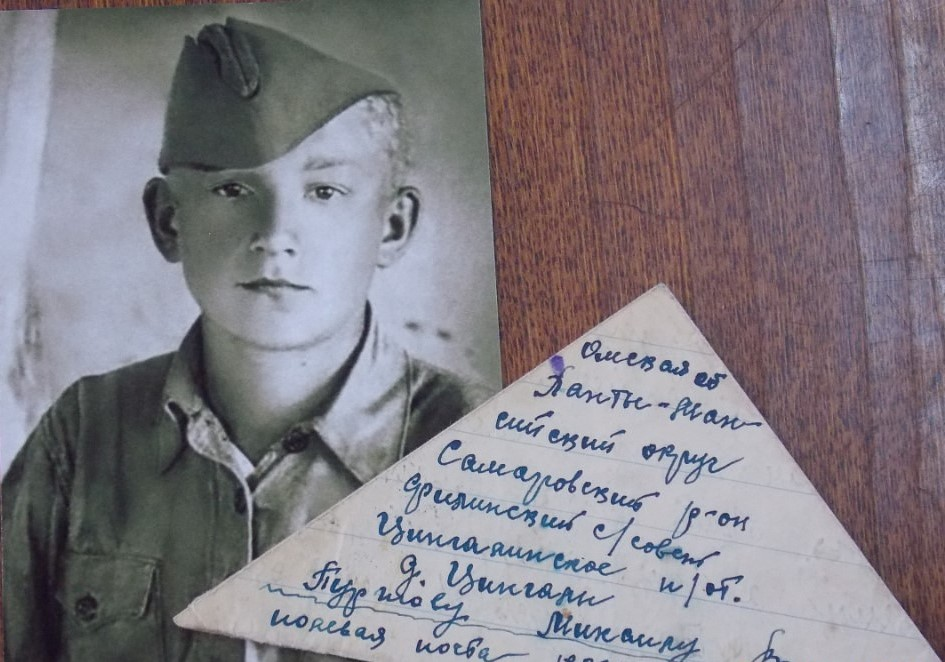 Омская об
Ханты-Ман-
сийский округ
Самаровский р-он
Филинский с/совет
Цингалинское п/от.
д. Цингали
Михаилу
полевая почта